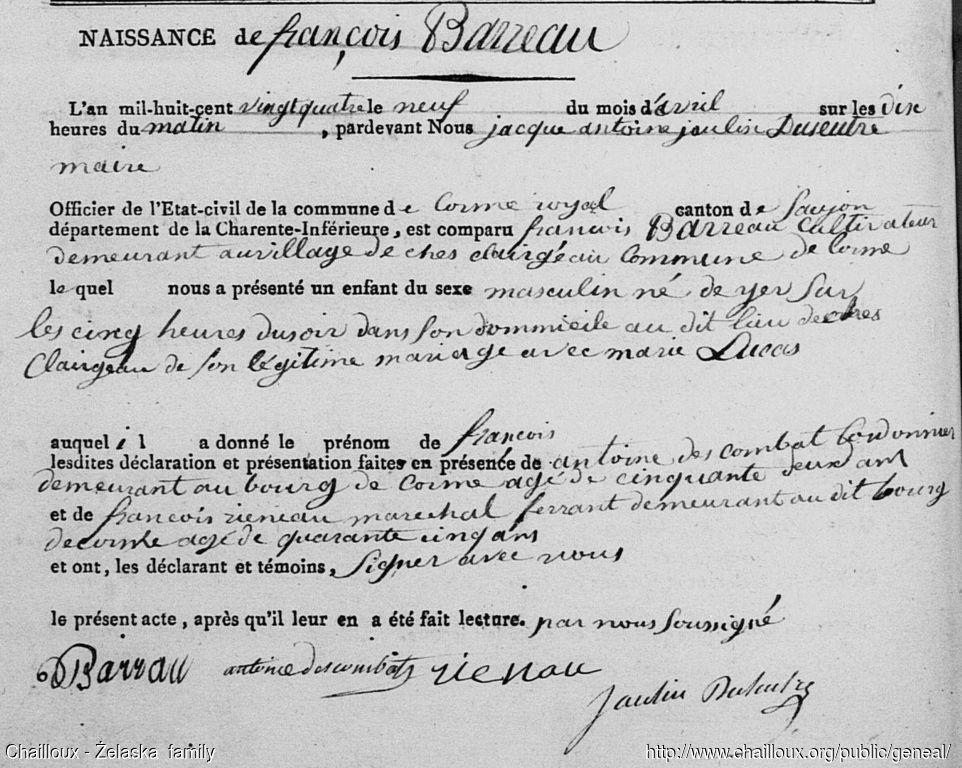 NAISSANCE de françois Barreau
L'an mil-huit-cent vingt quatre le neuf du mois d'avril sur les dix
heures du matin, pardevant Nous jacque antoine jaulin Duseutre
maire
Officier de l'Etat-civil de la commune de Corme royal canton de Saujon
département de la Charente-Inférieure, est comparu francois Barreau Cultivateur
demeurant au village de ches clairgeau Commune de Corme
le quel nous a présenté un enfant du sexe masculin né de yer sur
les cinq heures du soir dans son dommicile au dit lieu de ches
Clairgeau de son légitime mariage avec marie Lucas
auquel il a donné le prénom de françois
lesdites déclaration et présentation faites en présence de antoine des combat Cordonnier
demeurant au bourg de corme agé de cinquante deux ans
et de francois rieneau marechal ferrant demeurant au dit bourg
de corme agé de quarante cinq ans
et ont, les déclarant et témoins, Signer avec nous
le présent acte, après qu'il leur en a été fait lecture. par nous soussigné
Barrau antoine descombats rienau
Jaulin Duseutre
Chailloux - Želaska family http://www.chailloux.org/public/geneal/